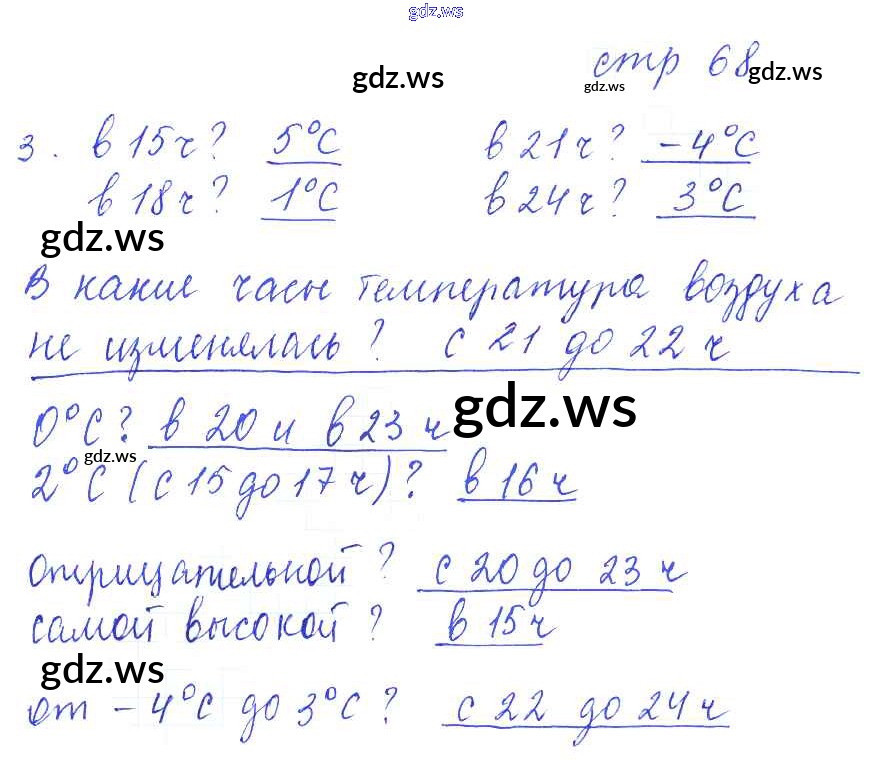 gdz.ws
стр 68
gdz.ws
gdz.ws
gdz.ws
3. в 15 ч? 5°C в 21 ч? -4°C
в 18 ч? 1°C в 24 ч? 3°C
gdz.ws
В какие часы температура воздуха
не изменялась? с 21 до 22 ч
0°C? в 20 и в 23 ч
gdz.ws
gdz.ws
2°C (с 15 до 17 ч)? в 16 ч
отрицательной? с 20 до 23 ч
самой высокой? в 15 ч
gdz.ws
от -4°C до 3°C? с 22 до 24 ч